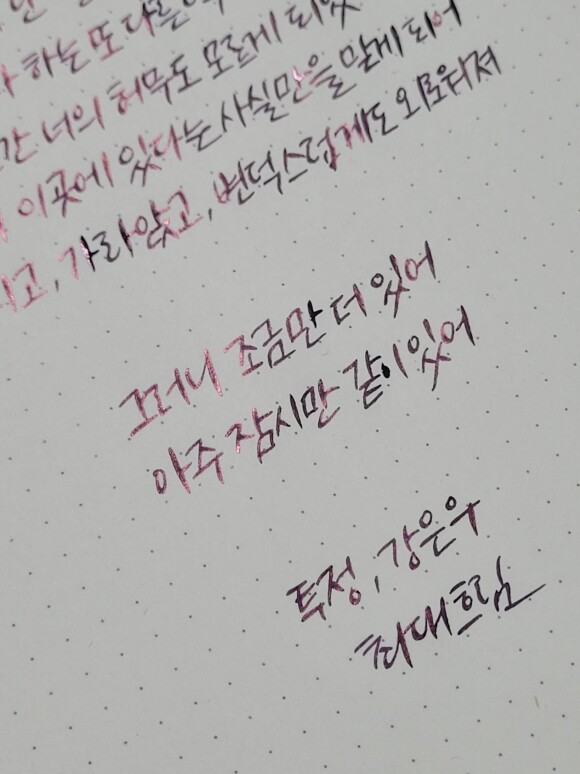 하는 또 다른
너의 허무도 모르게 되었
이곳에 있다는 사실만을 알게 되어
가라앉고, 변덕스럽게도 외로워져
그러니 조금만 더 있어
아주 잠시만 같이 있어
투정, 강은우
최대흐림